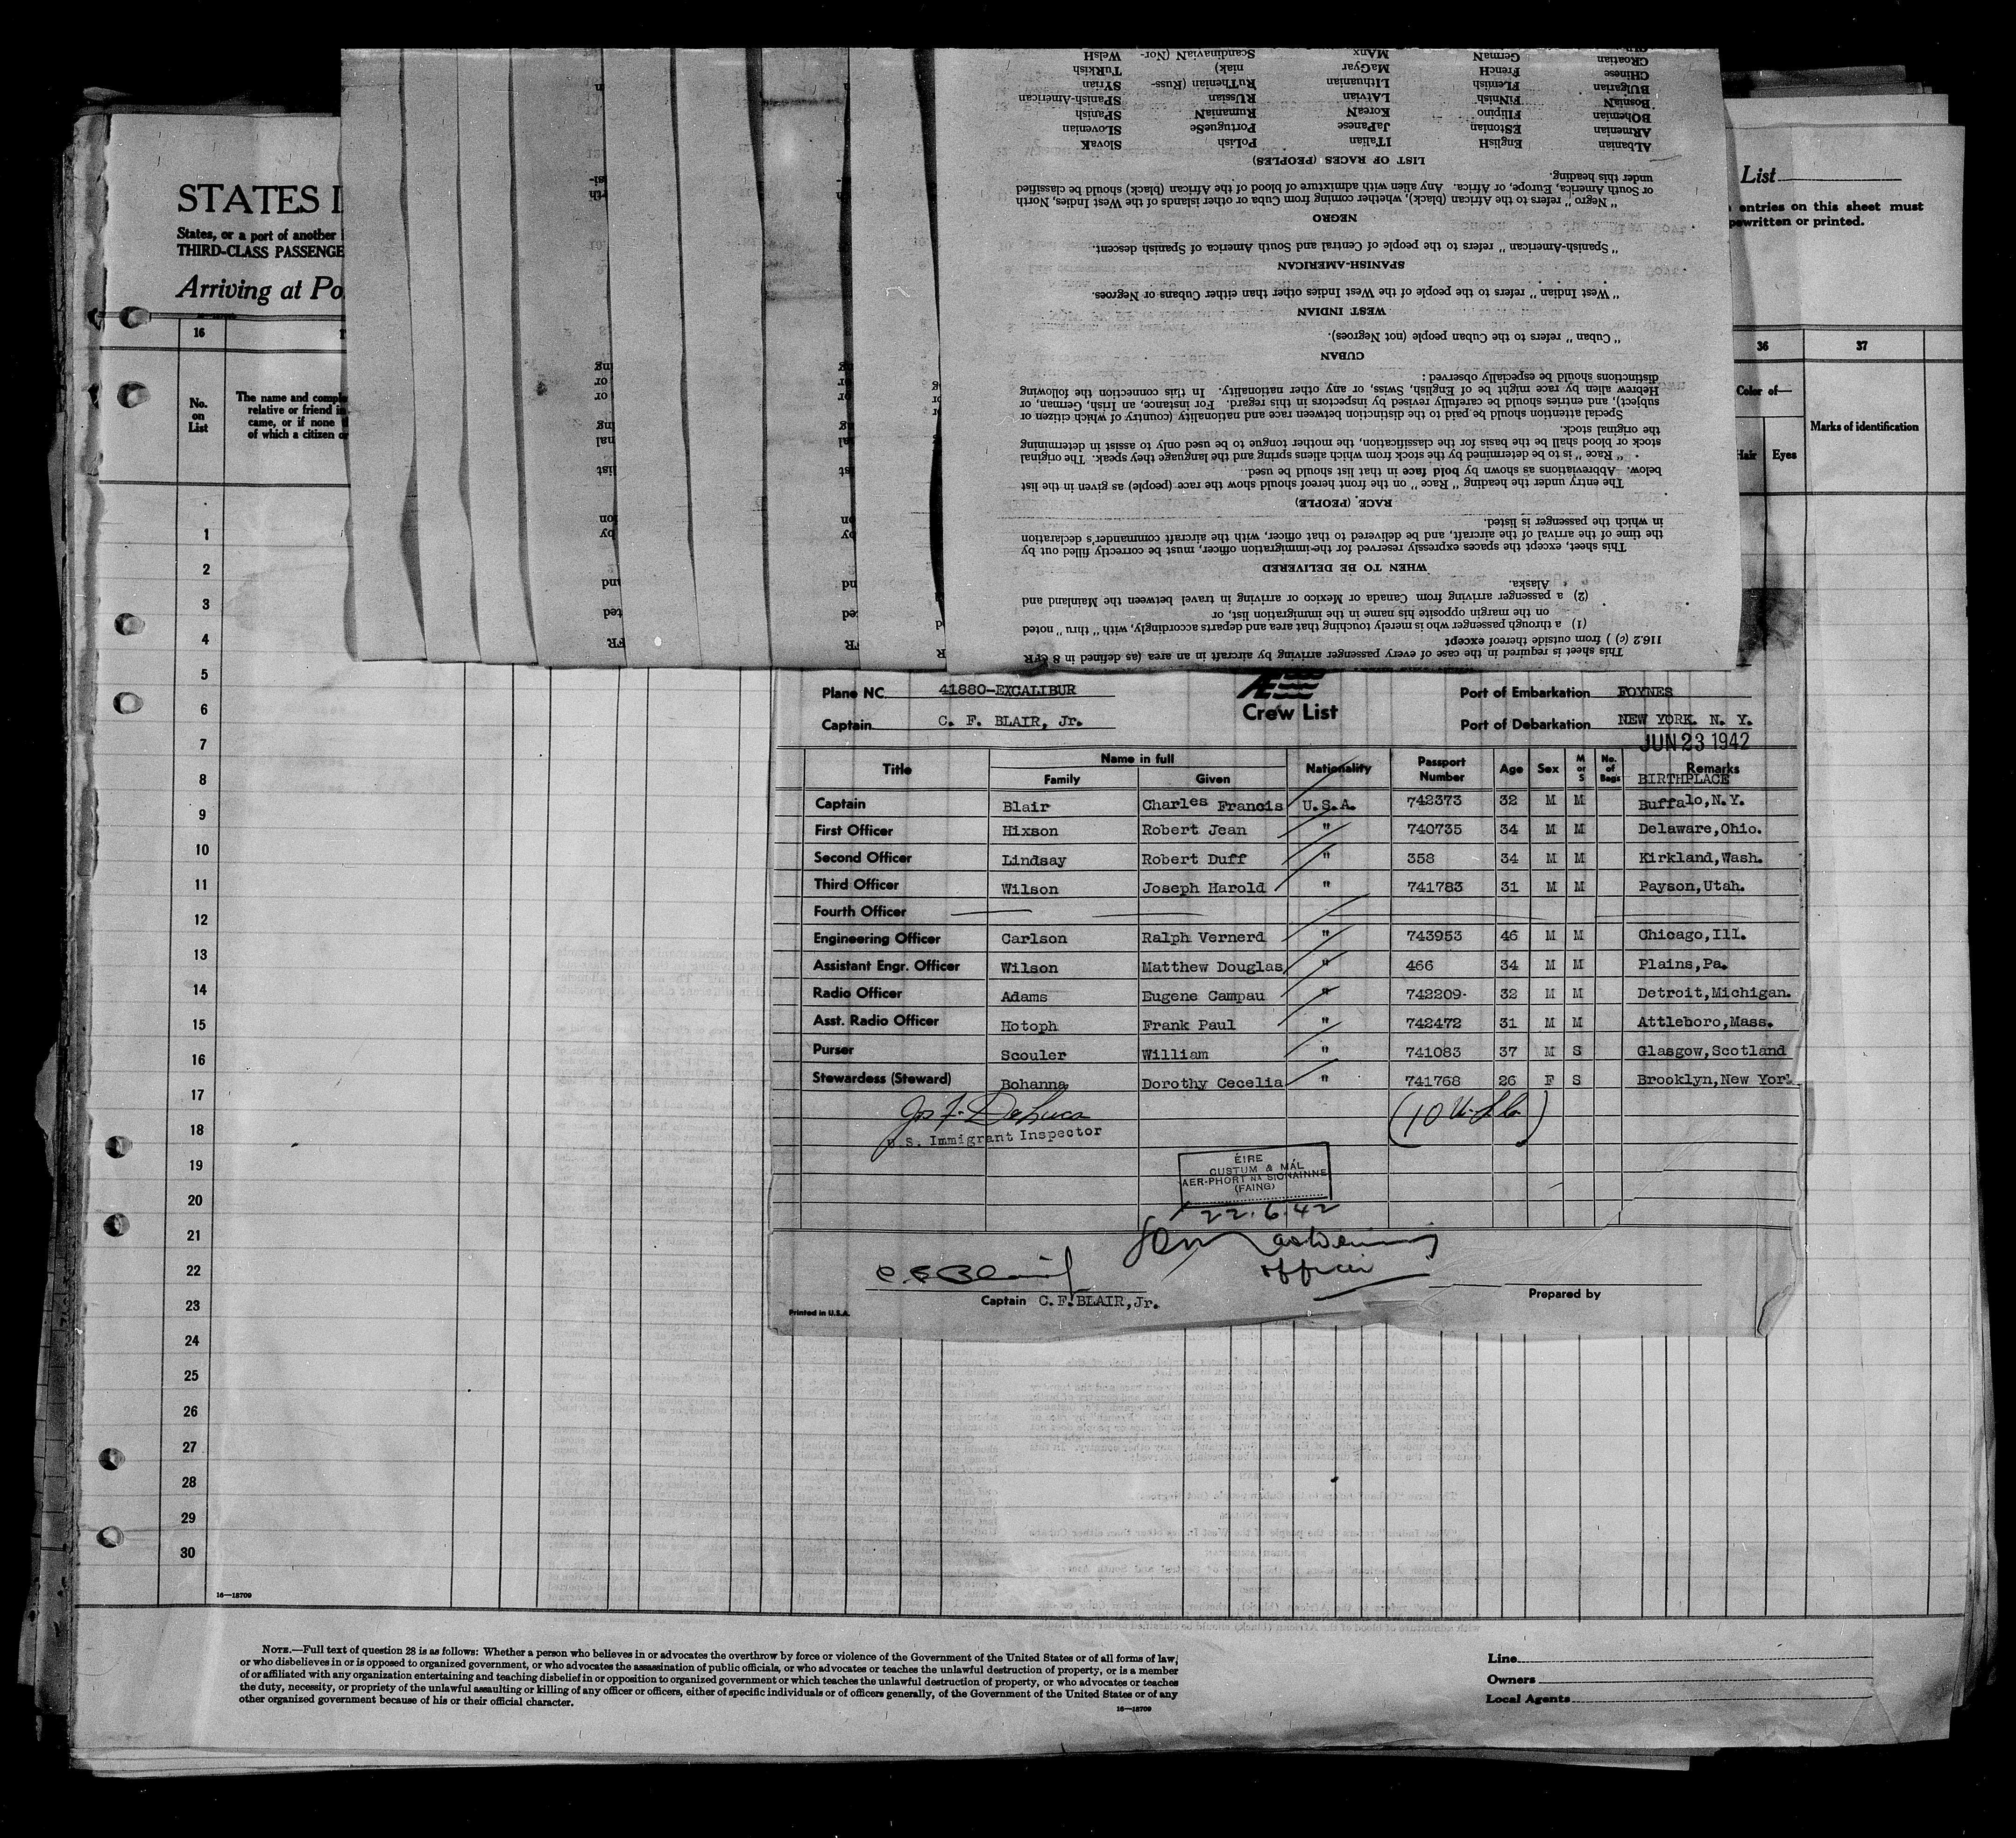 STATES I
States, or a port of another
THIRD-CLASS PASSENGE
Arriving at Po
List
entries on this sheet must
pewritten or printed.
16
36
37
No.
on
List
The name and comple
relative or friend in
came, or if none
of which a citizen or
Color of—
Hair
Eyes
Marks of identification
This sheet is required in the case of every passenger arriving by aircraft in an area (as defined in 8 CFR
116.2 (c) ) from outside thereof except
(1) a through passenger who is merely touching that area and departs accordingly, with "thru" noted
on the margin opposite his name in the immigration list, or
(2) a passenger arriving from Canada or Mexico or arriving in travel between the Mainland and
Alaska.
WHEN TO BE DELIVERED
This sheet, except the spaces expressly reserved for the immigration officer, must be correctly filled out by
the time of the arrival of the aircraft, and be delivered to that officer, with the aircraft commander's declaration
in which the passenger is listed.
RACE (PEOPLE)
The entry under the heading "Race" on the front hereof should show the race (people) as given in the list
below. Abbreviations as shown by bold face in that list should be used.
"Race" is to be determined by the stock from which aliens spring and the language they speak. The original
stock or blood shall be the basis for the classification, the mother tongue to be used only to assist in determining
the original stock.
Special attention should be paid to the distinction between race and nationality (country of which citizen or
subject), and entries should be carefully revised by inspectors in this regard. For instance, an Irish, German, or
Hebrew alien by race might be of English, Swiss, or any other nationality. In this connection the following
distinctions should be especially observed:
CUBAN
"Cuban" refers to the Cuban people (not Negroes).
WEST INDIAN
"West Indian" refers to the people of the West Indies other than either Cubans or Negroes.
SPANISH-AMERICAN
"Spanish-American" refers to the people of Central and South America of Spanish descent.
NEGRO
"Negro" refers to the African (black), whether coming from Cuba or other islands of the West Indies, North
or South America, Europe, or Africa. Any alien with admixture of blood of the African (black) should be classified
under this heading.
LIST OF RACES (PEOPLES)
ALbanian EngliSH ITALian POLish SlovaK
ARMenian EStonian JaPanese PortugueSe SLovenian
BOhemian FIlipino KoreaN RumaniaN SPanish
BosniaN FiNNish LAtvian RUSsian SPanish-American
BUlgarian FLemish LIthuanian RuThenian (Russ- SYrian
CHinese FrencH MaGyar niak) TuRkish
CRoatian GermaN MAnx ScandinaviaN (Nor- WelsH
Plane NC 41880-EXCALIBUR
Captain C. F. BLAIR, Jr.
Crew List
Port of Embarkation FOYNES
Port of Debarkation NEW YORK. N. Y.
JUN 23 1942
Title Name in full Family Given Nationality Passport Number Age Sex M or S No. of Bags Remarks
BIRTHPLACE
Captain Blair Charles Francis U.S.A. 742373 32 M M Buffalo,N.Y.
First Officer Hixson Robert Jean " 740735 34 M M Delaware,Ohio.
Second Officer Lindsay Robert Duff " 358 34 M M Kirkland,Wash.
Third Officer Wilson Joseph Harold " 741783 31 M M Payson,Utah.
Fourth Officer
Engineering Officer Carlson Ralph Vernerd " 743953 46 M M Chicago,Ill.
Assistant Engr. Officer Wilson Matthew Douglas " 466 34 M M Plains,Pa.
Radio Officer Adams Eugene Campau " 742209 32 M M Detroit,Michigan.
Asst. Radio Officer Hotoph Frank Paul " 742472 31 M M Attleboro,Mass.
Purser Scouler William " 741083 37 M S Glasgow,Scotland
Stewardess (Steward) Bohanna Dorothy Cecelia " 741768 26 F S Brooklyn,New York
Jos F. DeLuca
U.S. Immigrant Inspector
(10
ÉIRE
CUSTUM & MÁL
AER-PHORT NA SIONAINNE
(FAING)
22.6.42
officer
C F Blair Jr
Captain C.F.BLAIR,Jr.
Prepared by
Printed in U.S.A.
1
2
3
4
5
6
7
8
9
10
11
12
13
14
15
16
17
18
19
20
21
22
23
24
25
26
27
28
29
30
16—18709
NOTE.—Full text of question 28 is as follows: Whether a person who believes in or advocates the overthrow by force or violence of the Government of the United States or of all forms of law,
or who disbelieves in or is opposed to organized government, or who advocates the assassination of public officials, or who advocates or teaches the unlawful destruction of property, or is a member
of or affiliated with any organization entertaining and teaching disbelief in or opposition to organized government or which teaches the unlawful destruction of property, or who advocates or teaches
the duty, necessity, or propriety of the unlawful assaulting or killing of any officer or officers, either of specific individuals or of officers generally, of the Government of the United States or of any
other organized government because of his or their official character.
16—18709
Line
Owners
Local Agents